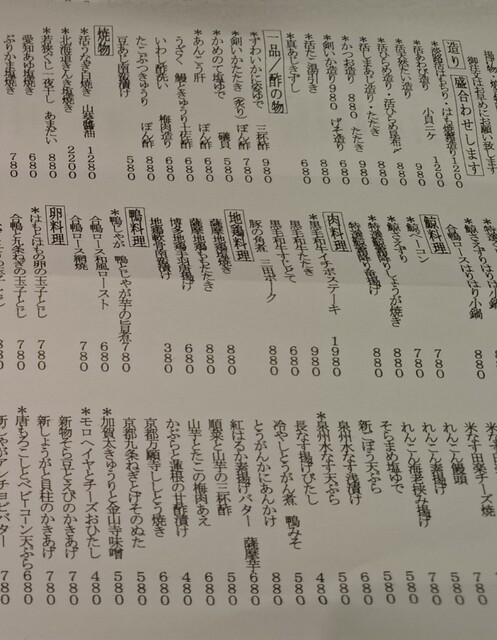 造り 盛合わせします
御注文はお早めにお願い致します
*活あわび造り 小貝二ケ 1200
*活天然たい造り 780
*活ひらめ造り・活ひらめ昆布〆 980
*活しまあじ造り・たたき 880
*かつお造り 880 たたき 980
*剣いか造り 980 げそ造り 680
*活だこ湯引き 880
*真あじきずし 880
一品/酢の物
*ずわいかに姿ゆで 三杯酢 980
*剣いかたたき(炙り) ぽん酢 780
*かめのて塩ゆで 磯貝 580
*あんこう肝 ぽん酢 680
うざく 鰻ときゅうり土佐酢 680
いわし酢洗い 梅肉造り 580
たこぶつきゅうり ぽん酢 880
豆あじ南蛮漬け 580
焼物
*活うなぎ白焼き 山葵醤油 1280
*北海道きんき塩焼き 2200
*若狭ぐじ一夜干し あまだい 880
愛知あゆ塩焼き 680
ぶりかま塩焼き 780
合鴨ロースはりはり小鍋
鯨料理
*鯨ベーコン 780
*鯨さえずり 780
肉料理
*黒毛和牛イチボステーキ 1980
*黒毛和牛たたき 980
黒毛和牛すじとて 680
豚の角煮 三田ポーク 880
地鶏料理
薩摩地鶏塩焼き 880
薩摩地鶏ももたたき 880
博多地鶏手羽唐揚げ 680
地鶏軟骨南蛮漬け 380
鴨料理
*鴨じゃが 鴨とじゃが芋の旨煮 780
合鴨ロース和風ロースト 680
合鴨ロース網焼 780
卵料理
*はもとはもの卵の玉子とじ 780
合鴨と九条ねぎの玉子とじ 780
米なす田楽チーズ焼
れんこん饅頭 780
れんこん素揚げ 580
れんこん海老挟み揚げ 780
そらまめ塩ゆで 580
新ごぼう天ぷら 680
泉州水なす浅漬け 580
*泉州水なす天ぷら 480
長なす揚げびたし 580
冷やしとうがん煮 鴨みそ 880
とうがんかにあんかけ 880
紅はるか素揚げバター 薩摩芋 680
順菜と山芋の三杯酢 580
山芋とたこの梅肉あえ 680
かぶらと蓮根の甘酢漬け 480
京都万願寺ししとう焼き 680
京都九条ねぎととげそのぬた 580
*加賀太きゅうりと金山寺味噌 580
*モロヘイヤとチーズおひたし 480
新物そら豆とえびのかきあげ 780
新しょうがと貝柱のかきあげ 780
*唐もろこしとベビーコーン天ぷら 680
新じゃがアンチョビバター 780